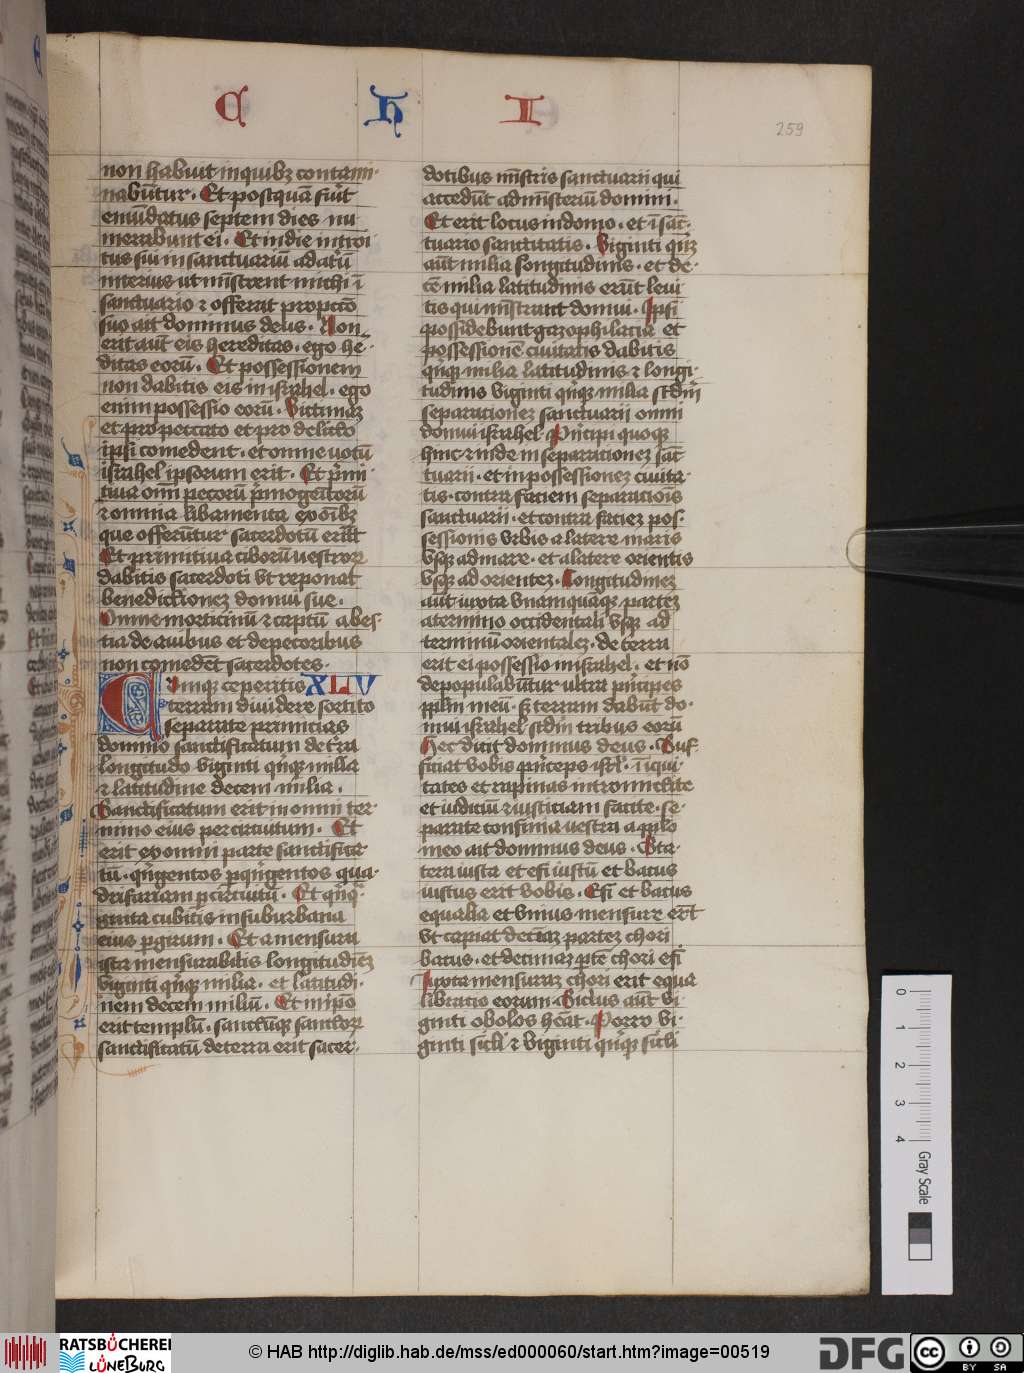 C H I
259
non habuit in quibꝫ contami⸗
nabūtur. Et postquā fuīt
emūdatus septem dies nu
merabunt ei. Et in die introi
tus sui in sanctuariū ad atriū
interius ut mīstrent michi ī
sanctuario ⁊ offerat pro pcc̄o
suo ait dominus deus. Non
erit aūt eis hereditas. ego he⸗
ditas eorū. Et possessionem
non dabitis eis in isr̄ahel. ego
enim possessio eorū. Victimaꝫ
et pro peccato et pro delicto
ipsi comedent. et omne uotū
isr̄ahel ipsorum erit. Et pͥmi⸗
tiua om̄ pecorū pͥmogenitorū
⁊ omnia libamenta ex oībꝫ
que offerūtur sacerdotū erūt
Et primitiua ciborū uestroꝝ
dabitis sacerdoti vt reponat
benedictioneꝫ domui sue.
Omne morticinū ⁊ captū a bes⸗
tia de auibus et de pecoribus
non comedēt sacerdotes.
Cumqꝫ ceperitis XLV
terram diuidere sortito
separate primicias
domino sanctificatum de tr̄a
longitudo viginti qͥnqꝫ milia
⁊ latitudine decem milia.
Sanctificatum erit in omni ter⸗
mino eius per circuitum. Et
erit ex omni parte sanctifica
tū. qͥngentos ꝑ qͥngentos qua
drifariam ꝑ circuitū. Et qͥnqͣ⸗
ginta cubitis in suburbana
eius ꝑ girum. Et a mensura
ista mensurabitis longitudīeꝫ
viginti qͥnqꝫ milia. et latitudi⸗
nem decem miliū. Et in ip̄o
erit templū. sanctūqꝫ sanctoꝝ
sanctificatū de terra erit sacer⸗
dotibus mīstris sanctuarii qui
accedūt ad mīsteriū domini.
Et erit locus in domo. et ī sāc⸗
tuario sanctitatis. Viginti qͥnqꝫ
aūt milia longitudinis. et de⸗
cē milia latitudinis erūt leui
tis qui mīstrant domui. Ipsi
possidebunt gazophilacia et
possessionē ciuitatis dabitis
qͥnqꝫ milia latitudinis ⁊ longi⸗
tudinis viginti qͥnqꝫ milia scd̄m
separationeꝫ sanctuarii omni
domui isr̄ahel. Pͥncipi quoqꝫ
hinc ⁊ inde in separationeꝫ sāc
tuarii. et in possessioneꝫ ciuita⸗
tis. contra faciem separatiōis
sanctuarii. et contra facieꝫ pos⸗
sessionis vrbis a latere maris
vsqꝫ ad mare. et a latere orientis
vsqꝫ ad orienteꝫ. Longitudineꝫ
aūt iuxta vnamquāqꝫ parteꝫ
a termino occidentali vsqꝫ ad
terminū orientaleꝫ. de terra
erit ei possessio in isr̄ahel. et nō
depopulabūtur ultra pͥncipes
ppl̄m meū. sꝫ terram dabūt do⸗
mui isr̄ahel scd̄m tribus eorū
Hec dicit dominus deus. Suf⸗
ficiat vobis pͥnceps isr̄l. īiqui
tates et rapinas intermittite
et iudiciū ⁊ iusticiam facite. se⸗
parate confinia uestra a pplo
meo ait dominus deus. Sta⸗
tera iusta et efi iustū et batus
iustus erit vobis. Efi et batus
equalia et vnius mensure erūt
vt capiat decimaꝫ parteꝫ chori
batus. et decimaꝫ ꝑte chori efi
Iuxta mensuraꝫ chori erit equa
libratio eorum. Siclus aūt vi⸗
ginti obolos hēat. Porro vi⸗
ginti sicli ⁊ viginti qͥnqꝫ sicli
0 1 2 3 4
Gray Scale
RATSBÜCHEREI
LÜNEBURG
© HAB http://diglib.hab.de/mss/ed000060/start.htm?image=00519
DFG
cc BY SA